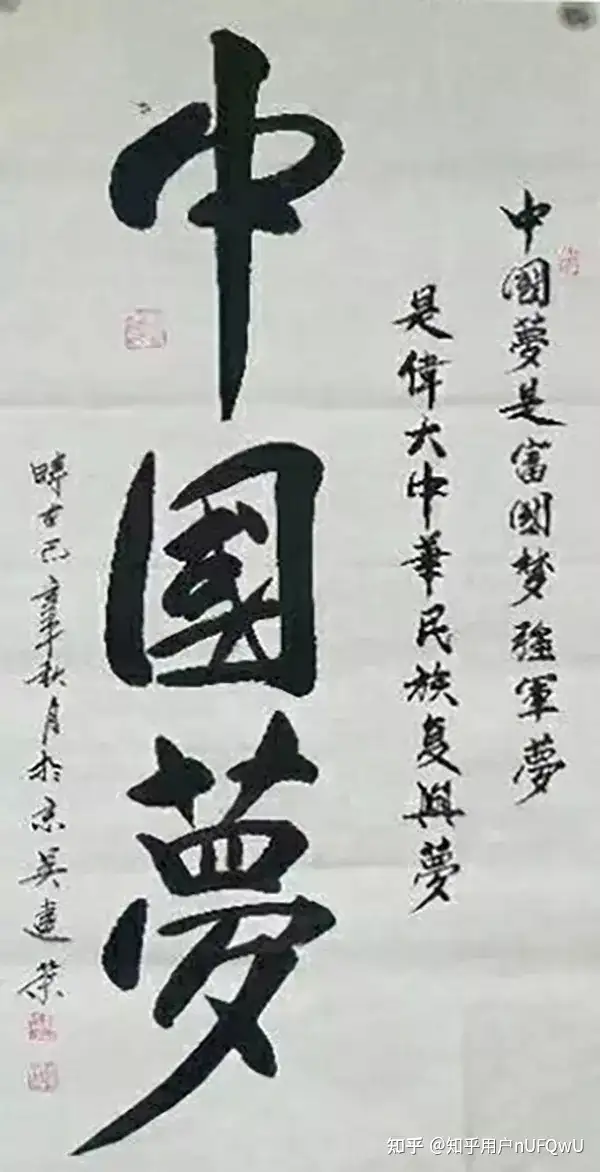 中國夢是富國梦強軍夢
是偉大中華民族复興夢
中國夢
時在己亥年秋月於京吴建荣
知乎 @知乎用户nUFQwU